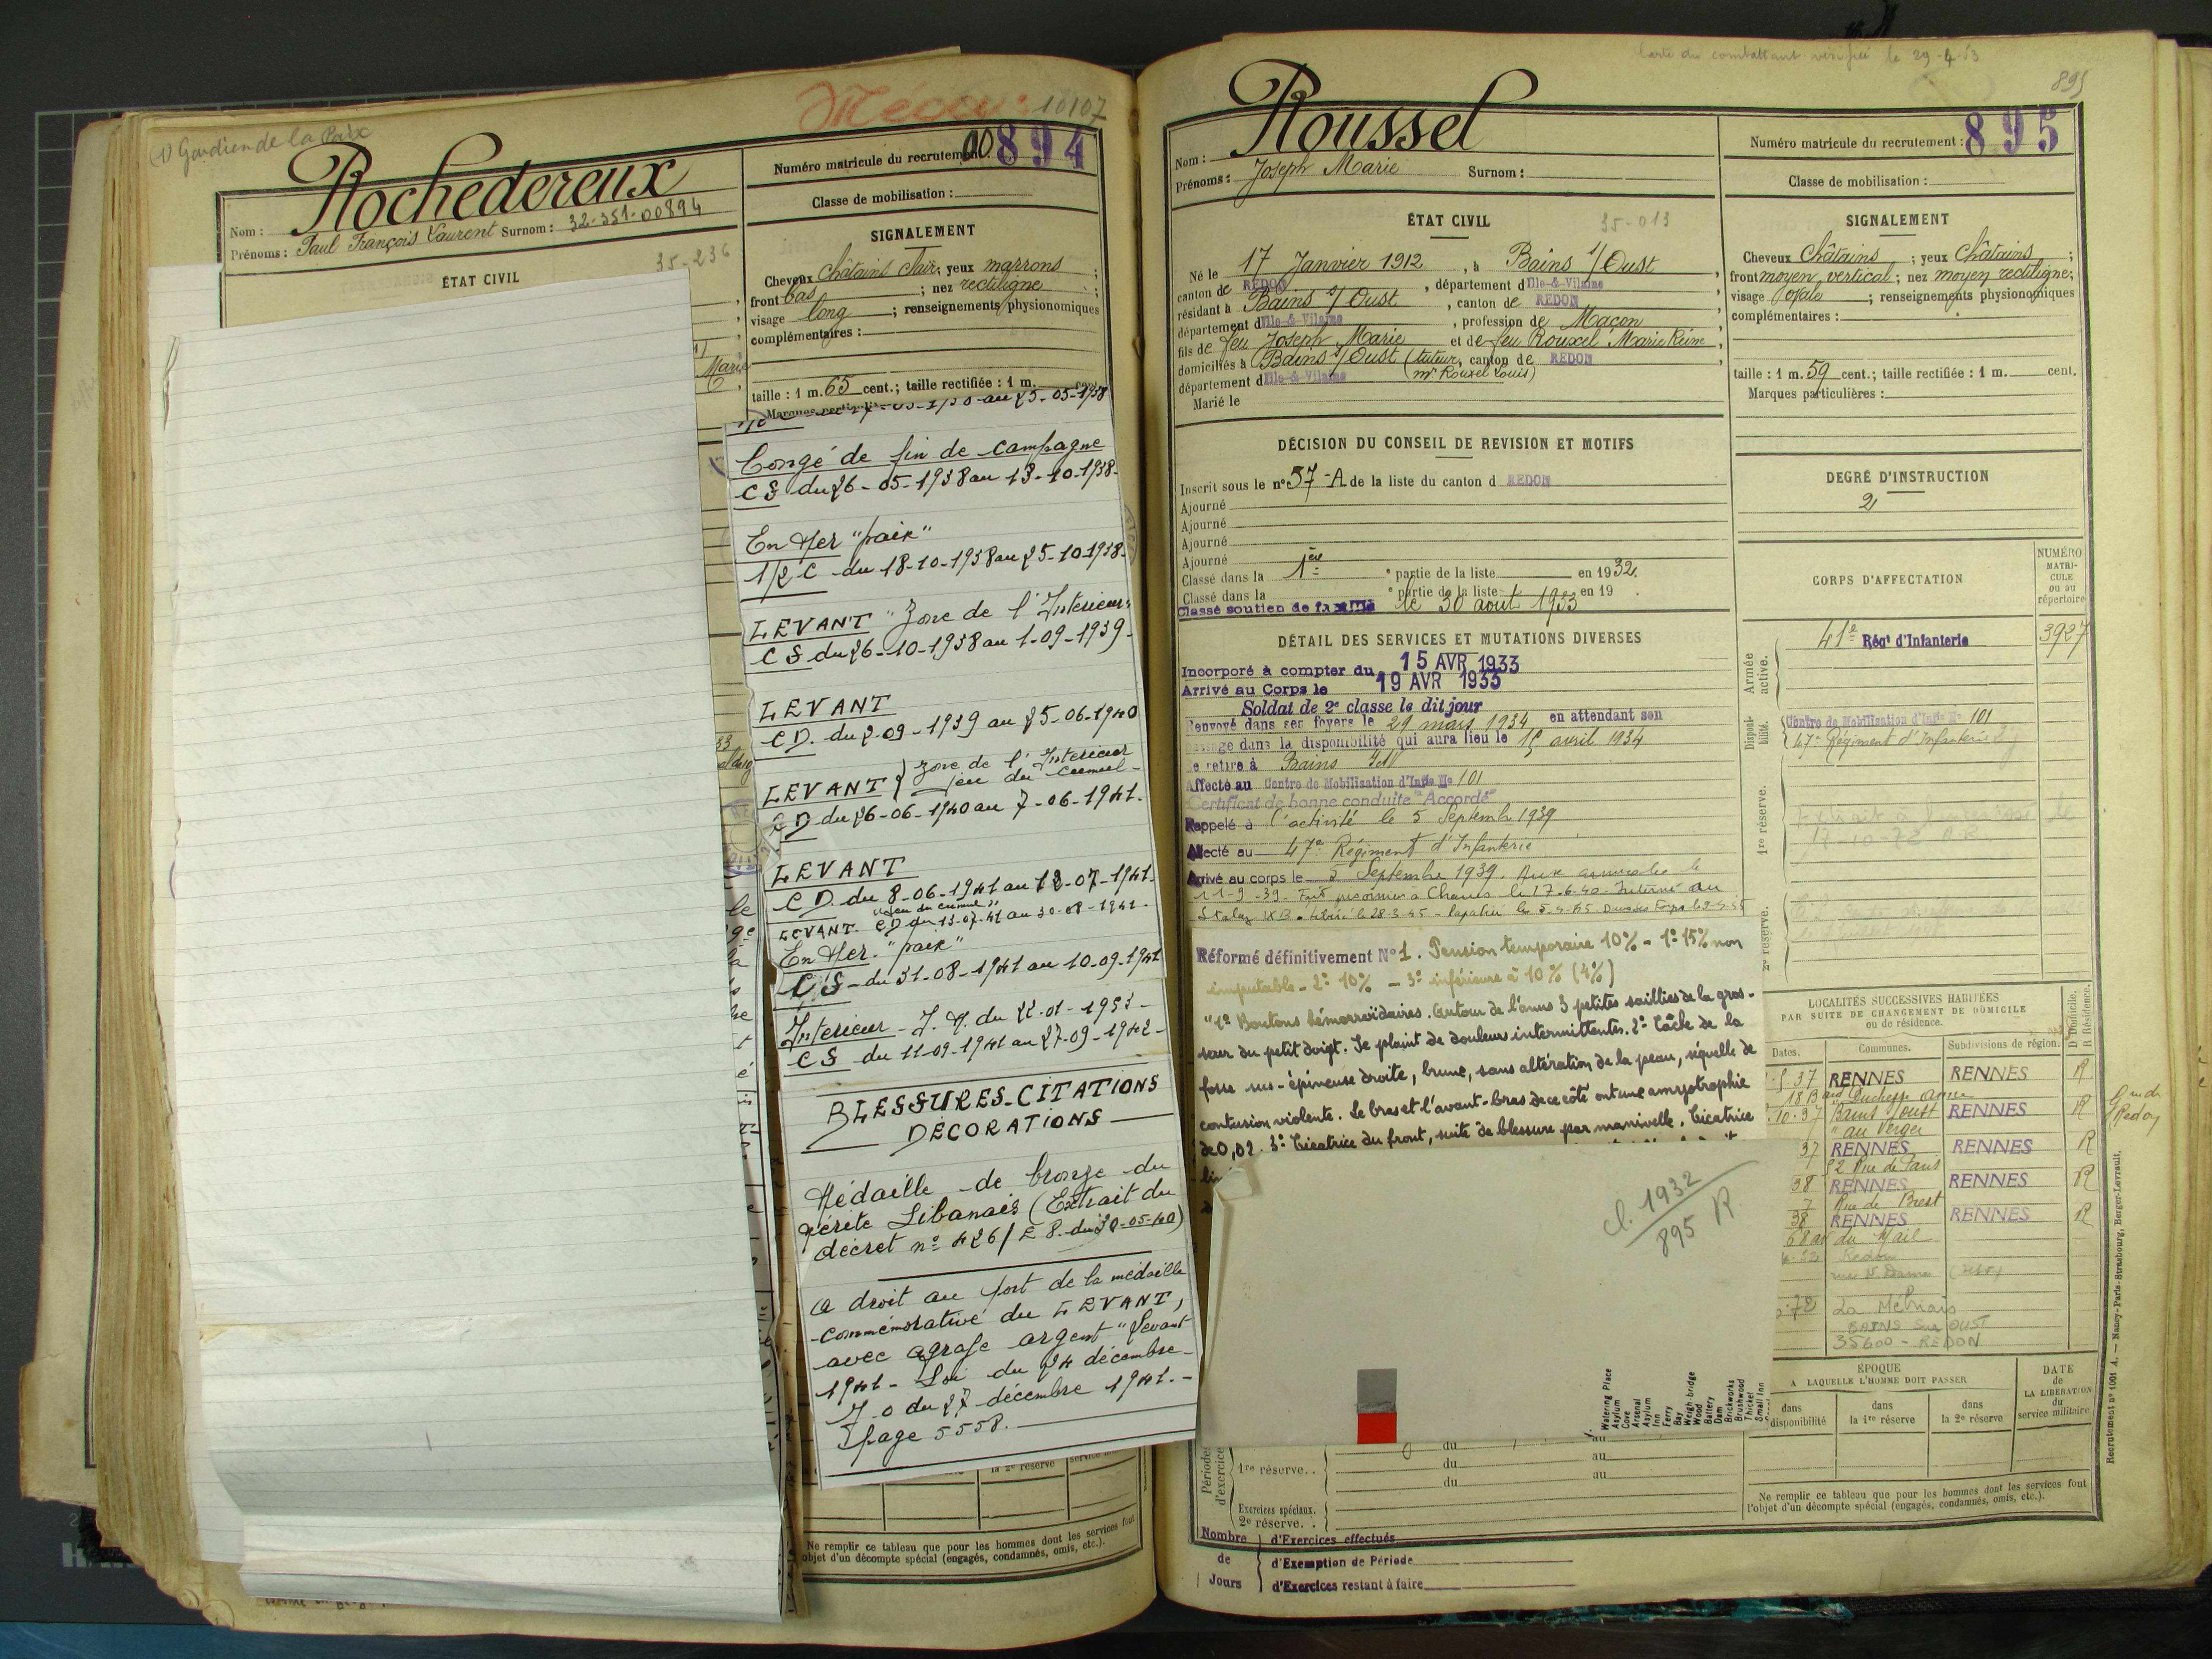 (1) Gardien de la Paix
10107
Rochedereux
Nom :
Prénoms : Paul François Laurent Surnom : 32-351-00894
35-236
ÉTAT CIVIL
Numéro matricule du recrutement : 00894
Classe de mobilisation :
SIGNALEMENT
Cheveux châtains clair; yeux marrons ;
front bas ; nez rectiligne ;
visage long ; renseignements physionomiques
complémentaires :
Marie
taille : 1 m. 65 cent.; taille rectifiée : 1 m. cent.
au 25-05-1938
Congé de fin de campagne
CS du 26-05-1938 au 13-10-1938-
En Mer "paix"
1/2 C du 18-10-1938 au 25-10-1938-
LEVANT "Zone de l'Intérieur"
CS du 26-10-1938 au 1-09-1939-
LEVANT
CD. du 2-09-1939 au 25-06-1940
LEVANT { Zone de l'Intérieur
jeu du cumul-
CD du 26-06-1940 au 7-06-1941.
LEVANT
CD. du 8-06-1941 au 12-07-1941-
"jeu du cumul"
LEVANT- CD du 13-07-41 au 30-08-1941-
En Mer- "paix"
CS-du 31-08-1941 au 10-09-1941
Intérieur -
CS du 11-09-1941 au 27-09-1942-
BLESSURES-CITATIONS
DÉCORATIONS-
Médaille de bronze du
mérite Libanais (Extrait du
décret n°
a droit au port de la médaille
-commémorative du LEVANT,
avec agrafe argent "Levant
1941- Loi du 24 décembre-
J.O du 27 décembre 1941.-
page 5558.-
la 2e réserve
Ne remplir ce tableau que pour les hommes dont les services font
l'objet d'un décompte spécial (engagés, condamnés, omis, etc.).
Carte du combattant vérifiée le 29-4-53
895
Roussel
Nom :
Prénoms : Joseph Marie Surnom :
Numéro matricule du recrutement : 895
Classe de mobilisation :
ÉTAT CIVIL 35-013
Né le 17 Janvier 1912, à Bains s/Oust,
canton de REDON, département d'Ille-&-Vilaine
résidant à Bains s/Oust, canton de REDON,
département d'Ille-&-Vilaine, profession de Maçon,
fils de feu Joseph Marie et de feu Rouxel Marie Reine,
domiciliés à Bains s/Oust (tuteur, canton de REDON,
département d'Ille-&-Vilaine (Mr Rouxel Louis)
Marié le
SIGNALEMENT
Cheveux Châtains ; yeux Châtains ;
front moyen vertical ; nez moyen rectiligne;
visage ovale ; renseignements physionomiques
complémentaires :
taille : 1 m. 59 cent.; taille rectifiée : 1 m. cent.
Marques particulières :
DÉCISION DU CONSEIL DE REVISION ET MOTIFS
Inscrit sous le n° 37-A de la liste du canton d REDON
Ajourné
Ajourné
Ajourné
Ajourné
Classé dans la 1ère e partie de la liste en 1932.
Classé dans la e partie de la liste en 19 .
Classé soutien de famille le 30 août 1933
DEGRÉ D'INSTRUCTION
2
DÉTAIL DES SERVICES ET MUTATIONS DIVERSES
Incorporé à compter du 15 AVR 1933
Arrivé au Corps le 19 AVR 1933
Soldat de 2e classe le dit jour
Renvoyé dans ses foyers le 29 mars 1934 en attendant son
passage dans la disponibilité qui aura lieu le 15 avril 1934
Se retire à Bains
Affecté au Centre de Mobilisation d'Infie No 101
Certificat de bonne conduite "Accordé"
Rappelé à l'activité le 5 Septembre 1939
Affecté au 47e Régiment d'Infanterie
Arrivé au corps le 5 Septembre 1939. Aux armées le
11-9-39. Fait prisonnier à Charnes le 17.6.40. Interné au
Stalag IX B. Libéré le 28.3.45 - Rapatrié le 5-4-45
Réformé définitivement N°1. Pension temporaire 10% - 1° 15% non
imputable - 2° 10% - 3° inférieure à 10% (4%)
"1° Boutons hémorroïdaires. Autour de l'anus 3 petites saillies de la gros-
seur du petit doigt. Se plaint de douleurs intermittentes. 2° Tâche de la
fosse sus-épineuse droite, brune, sans altération de la peau, séquelle de
contusion violente. Le bras et l'avant-bras de ce côté ont une amyotrophie
de 0,02. 3° Cicatrice du front, suite de blessure par manivelle. Cicatrice
cl. 1932
895 R.
Watering Place
Asylum
Cove
Arsenal
Asylum
Inn
Ferry
Bay
Weigh-bridge
Wood
Battery
Dam
Brickworks
Brushwood
Thicket
Small Inn
CORPS D'AFFECTATION
NUMÉRO
MATRI-
CULE
ou au
répertoire
Armée active.
41e Régt d'Infanterie 3927
Disponi-bilité.
Centre de Mobilisation d'Infie No 101
47e Régiment d'Infanterie
1re réserve.
17-10-72
2e réserve.
LOCALITÉS SUCCESSIVES HABITÉES
PAR SUITE DE CHANGEMENT DE DOMICILE
ou de résidence.
D. Domicile.
R. Résidence.
Dates. Communes. Subdivisions de région.
37 RENNES RENNES R
18 Bard Duchesse Anne
10.37 Bains s/oust RENNES R
"au Verger
37 RENNES RENNES R
82 Rue de Paris
38 RENNES RENNES R
7 Rue de Brest
38 RENNES RENNES R
68 du Mail
Redon
rue N. Dame
72 La Métriais
BAINS sur OUST
35600 - REDON
ÉPOQUE
A LAQUELLE L'HOMME DOIT PASSER
DATE
de
LA LIBÉRATION
du
service militaire
dans
disponibilité
dans
la 1re réserve
dans
la 2e réserve
Ne remplir ce tableau que pour les hommes dont les services font
l'objet d'un décompte spécial (engagés, condamnés, omis, etc.).
Périodes d'exercices
du au
1re réserve. . du au
du au
Exercices spéciaux.
2e réserve. .
Nombre d'Exercices effectués
de d'Exemption de Période
Jours d'Exercices restant à faire
Recrutement n° 1001 A. — Nancy-Paris-Strasbourg, Berger-Levrault.